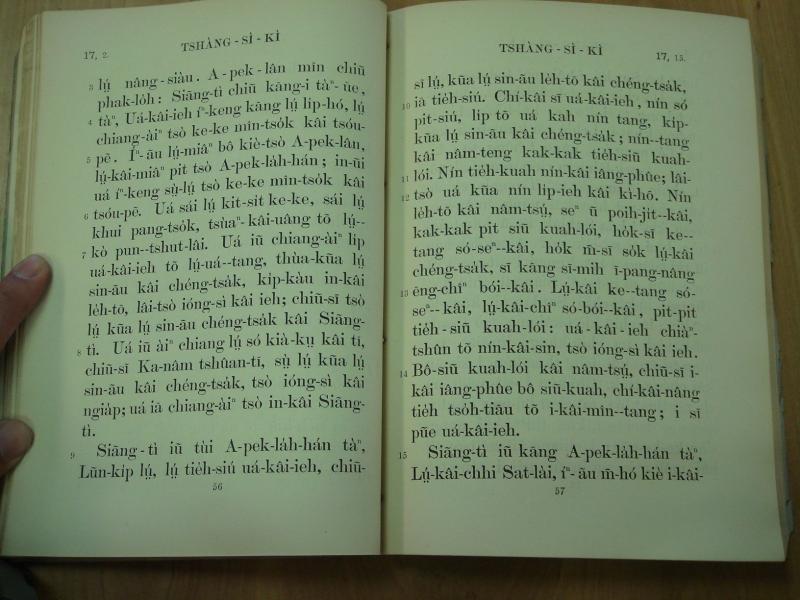 17, 2.
TSHÀNG - SÌ - KÌ
3 lṳ́ nâng-siàu. A-pek-lân mīn chiū
phak-lo̍h: Siāng-tì chiū kāng-i tàⁿ-ūe,
4 tàⁿ, Uá-kâi-ieh íⁿ-keng kāng lṳ́ li̍p-hó, lṳ́
chiang-àiⁿ tsò ke-ke mîn-tso̍k kâi tsóu-
5 pē. Íⁿ-āu lṳ́-miâⁿ bô kiè-tsò A-pek-lân,
lṳ́-kâi-miâⁿ pit tsò A-pek-la̍h-hán; in-ūi
uá íⁿ-keng sṳ̀-lṳ́ tsò ke-ke mîn-tso̍k kâi
6 tsóu-pē. Uá sái lṳ́ kit-sit ke-ke, sái lṳ́
khui pang-tso̍k, tsùaⁿ-kâi-uâng tō lṳ́--
7 kò pun--tshut-lâi. Uá iū chiang-àiⁿ li̍p
uá-kâi-ieh tō lṳ́-uá--tang, thùa-kūa lṳ́
sin-āu kâi chéng-tsa̍k, ki̍p-kàu in-kâi
le̍h-tō, lâi-tsò ióng-sì kâi ieh; chiū-sī tsò
lṳ́ kūa lṳ́ sin-āu chéng-tsa̍k kâi Siāng-
8 tì. Uá iū àiⁿ chiang lṳ́ só kià-kṳ kâi tī,
chiū-sī Ka-nâm tshûan-tī, sṳ̀ lṳ́ kūa lṳ́
sin-āu kâi chéng-tsa̍k, tsò ióng-sì kâi
ngia̍p; uá iā chiang-àiⁿ tsò in-kâi Siāng-
tì.
9 Siāng-tì iū tùi A-pek-la̍h-hán tàⁿ,
Lūn-ki̍p lṳ́, lṳ́ tie̍h-siú uá-kâi-ieh, chiū-
56
TSHÀNG - SÌ - KÌ
17, 15.
sī lṳ́, kūa lṳ́ sin-āu le̍h-tō kâi chéng-tsa̍k,
10 iā tie̍h-siú. Chí-kâi sī uá-kâi-ieh, nín só
pit-siú, li̍p tō uá kah nín tang, ki̍p-
kūa lṳ́ sin-āu kâi chéng-tsa̍k; nín--tang
kâi nâm-teng kak-kak tie̍h-siū kuah-
11 lói. Nín tie̍h-kuah nín-kâi iâng-phûe; lâi-
12 tsò uá kūa nín li̍p-ieh kâi kì-hō. Nín
le̍h-tō kâi nâm-tsṳ́, seⁿ ū poih-ji̍t--kâi,
kak-kak pit siū kuah-lói, ho̍k-sī ke--
tang só-seⁿ--kâi, ho̍k m̄-sī so̍k lṳ́-kâi
chéng-tsa̍k, sī kāng sī-mih ī-pang-nâng
13 ēng-chîⁿ bói--kâi. Lṳ́-kâi ke--tang só-
seⁿ--kâi, lṳ́-kâi-chîⁿ só-bói--kâi, pit-pit
tie̍h-siū kuah-lói: uá-kâi-ieh chiàⁿ-
tshûn tō nín-kâi-sin, tsò ióng-sì kâi ieh.
14 Bô-siū kuah-lói kâi nâm-tsṳ́, chiū-sī i-
kâi iâng-phûe bô siū-kuah, chí-kâi-nâng
tie̍h tso̍h-tiāu tō i-kâi-mîn--tang; i sī
pūe uá-kâi-ieh.
15 Siāng-tì iū kāng A-pek-la̍h-hán tàⁿ,
Lṳ́-kâi-chhi Sat-lài, íⁿ-āu m̄-hó kiè i-kâi-
57